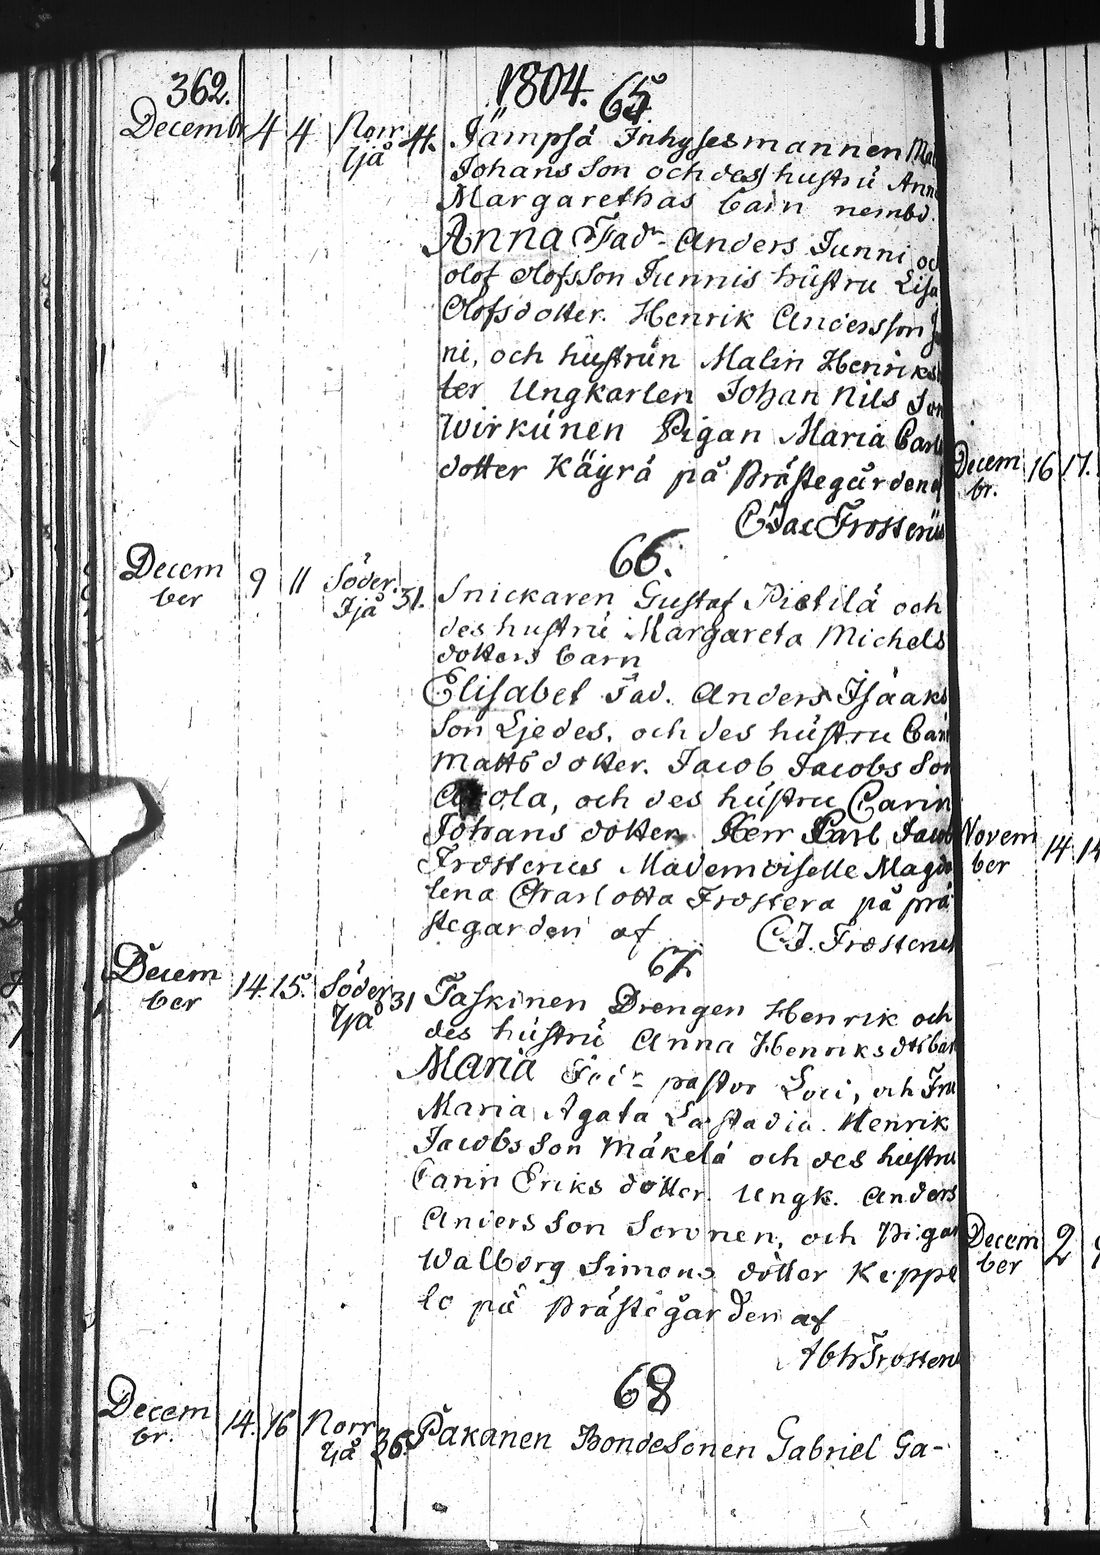 362. 1804.
65.
Decembr 4 4 Norr Ijå 41. Jämpsä Inhysesmannen
Johans Son och des hustru
Margarethas barn nembd.
Anna Fadr. Anders Junni
olof olofsson Junnis hustru Lisa
Olofsdotter. Henrik Andersson
ni, och hustrun Malin Henriks
ter Ungkarlen Johan Nils Son
Wirkunen Pigan Maria Carls
dotter Käyrä på Prästegården
C Jac Frosterus
66.
Decem ber 9 11 Söder Ijå 31. Snickaren Gustaf Pietilä och
des hustru Margareta Michels
dotters barn
Elisabet Fad. Anders Isaaks
Son Ljedes, och des hustru
Matts dotter. Jacob Jacobs Son
ola, och des hustru Carin
Johans dotter Herr Carl Jacob
Frosterus Mademoiselle Magda
lena Charlotta Frostera på prä
stegården af C.J. Frosterus
67.
Decem ber 14. 15. Söder Ijå 31 Taskinen Drengen Henrik och
des hustru Anna Henriksdts
Maria pastor Loci, och Fru
Maria Agata Henrik
Jacobs Son Mäkelä och des hustru
Carin Eriks dotter. Ungk. Anders
Anders Son Soronen, och Pigan
Walborg Simons dotter Keppe
lo på Prästegården af
Abh Frosterus
68
Decem br. 14. 16 Norr Ijå 36. Pakanen Bondesonen Gabriel Ga-
Decem br. 16 17.
Novem ber 14 14
Decem ber 2